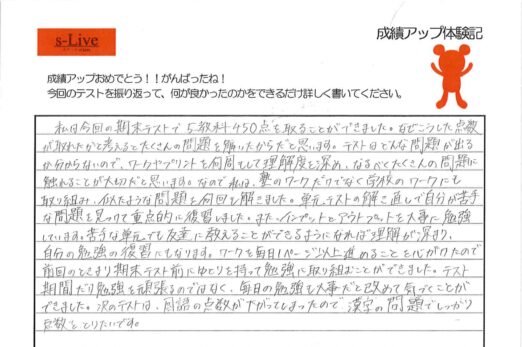 s-Live
成績アップ体験記
成績アップおめでとう！！がんばったね！
今回のテストを振り返って、何が良かったのかをできるだけ詳しく書いてください。
私は今回の期末テストで5教科450点を取ることができました。なぜこうした点数
が取れたかと考えるとたくさんの問題を解いたからだと思います。テストはどんな問題が出る
か分からないので、ワークやプリントを何周もして理解度を深め、なるべくたくさんの問題に
触れることが大切だと思います。なので私は、塾のワークだけでなく学校のワークにも
取り組み、似たような問題を何回も解きました。単元テストの解き直しで自分が苦手
な問題を見つけて重点的に復習しました。また、インプットとアウトプットを大事に勉強
しています。苦手な単元でも友達に教えることができるようになれば理解が深まり、
自分の勉強の復習にもなります。ワークを毎日1ページ以上進めることを心がけたので
前回のときより期末テスト前にゆとりを持って勉強に取り組むことができました。テスト
期間だけ勉強を頑張るのではなく、毎日の勉強も大事だと改めて気づくことが
できました。次のテストは、国語の点数が下がってしまったので漢字の問題でしっかり
点数をとりたいです。